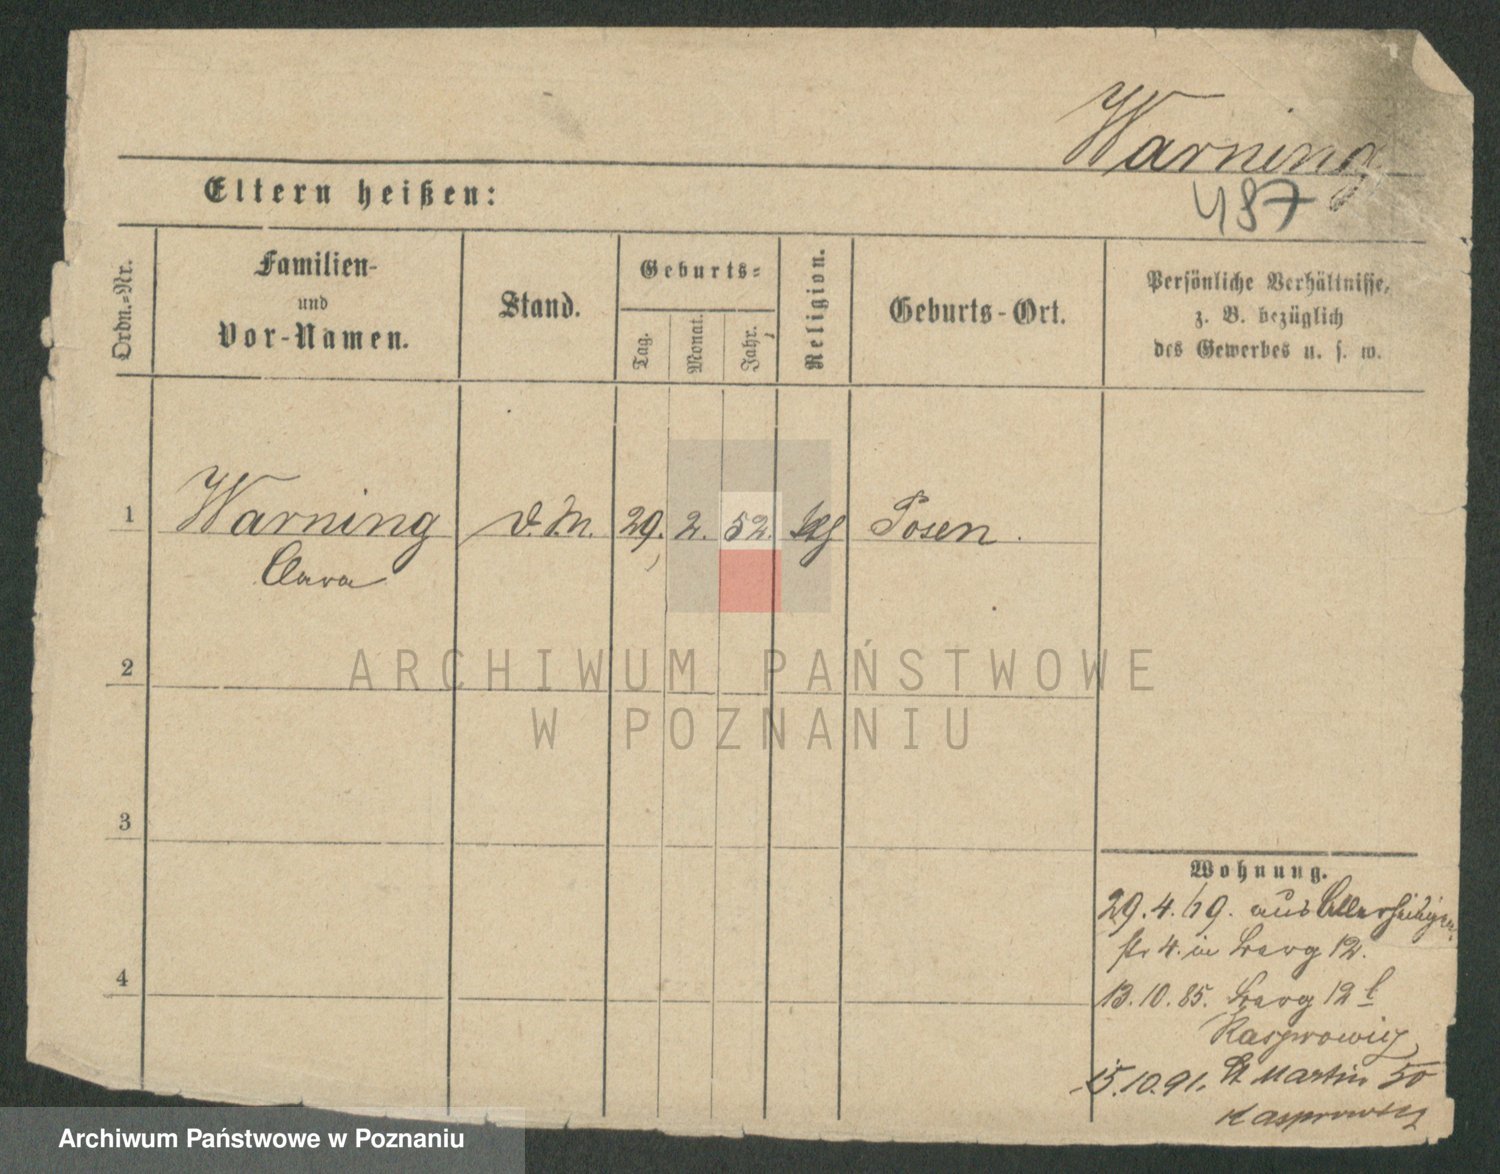 Warning
487
Eltern heißen:
Ordn.-Nr.
Familien-
und
Vor-Namen.
Stand.
Geburts-
Tag.
Monat.
Jahr.
Religion.
Geburts-Ort.
Persönliche Verhältnisse,
z. B. bezüglich
des Gewerbes u. s. w.
1
Warning
Clara
29. 2. 52.
Posen.
2
3
4
ARCHIWUM PAŃSTWOWE
W POZNANIU
Wohnung.
29.4.69. aus Allerheiligen
str 4. in Berg 12.
13.10.85. Berg 12
Kasprowicz
15.10.91. St Martin 50
Kasprowicz
Archiwum Państwowe w Poznaniu